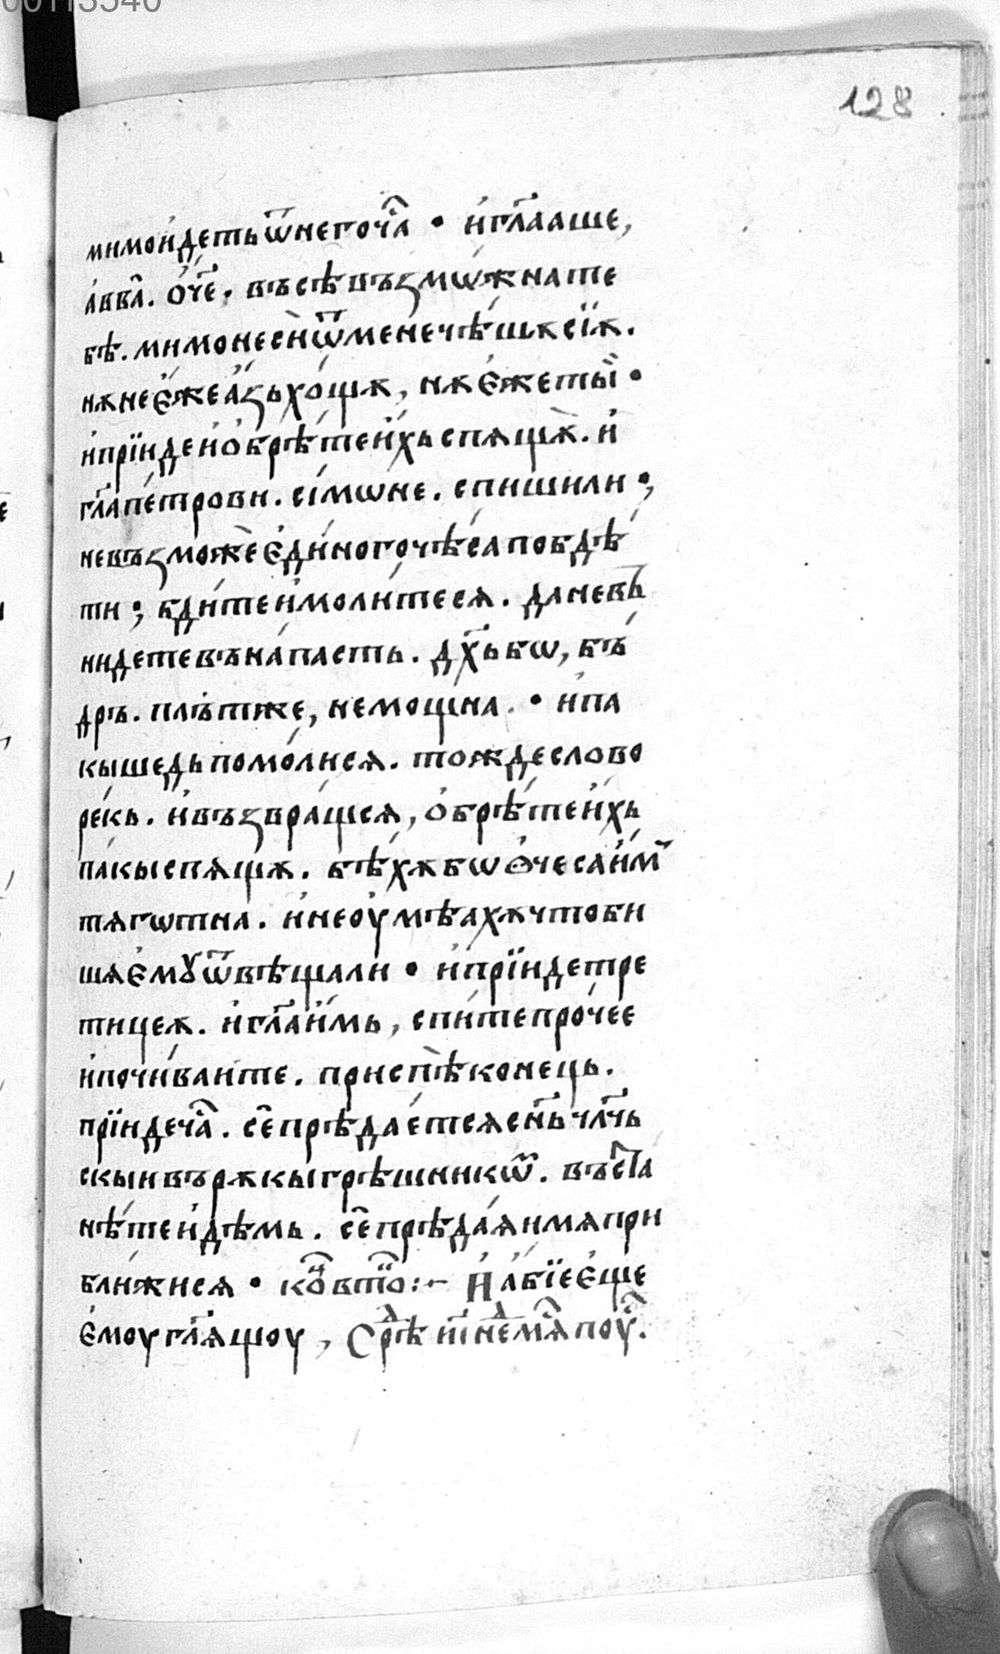 00113540
128
мимои́деть ѿ него ча҇с • и҆ гл҃ааше,
а҆вва̀. ѻ҆ч҃е. въсѣ възмѡжна те
бѣ. мимонесѝ ѿ мене чѣшѫ сїѫ.
нѫ не є҆же а҆зь хо́щѫ, нѫ є҆же ты̀ •
и҆ прїиде и҆ ѻ҆брѣ́те и҆́хь спѧща̀. и҆
гл҃а пе́трови. сі́мѡне. спиши ли •;
не възможе є҆ди́ного чѣ́са побдѣ́
ти; бди́те и҆ моли́те сѧ. да не вь́
нидете въ на́пасть. дх҃ь бѡ, бъ́
дръ. плъ́т же, немощна. • и҆ па
кы шедь помо́ли сѧ. то́жде слово
ре́кь. и҆ възвра́щсѧ, ѻ҆брѣ́те и҆́хь
па́кы спѧщѫ. бѣ́хѫ бѡ ѻ҆чеса и҆́м
тѧгѡтна. и҆ не оу҆мѣ́ахѫ что би
шѧ є҆мꙋ ѿвѣщали • и҆ прїиде тре
тицеѫ. и҆ гл҃а и҆́мь, спи́те про́чее
и҆ почи́ваите. приспѣ̀ конець.
прїиде ча҇с. се̑ прѣдае́т сѧ сн҃ь чл҃чь
скыи въ рѫкы грѣ́шникѡ҇м. въста
нѣ́те и҆дѣ́мь. се̑ прѣда́ѧи мѧ при
бли́жи сѧ • ко҇н в҇ то҇р :~ И҆ а҆бїе є҆ще
є҆моу гл҃ѧщоу, Срѣ҇д н҇і не҇д мѧ҇с поу҇с.